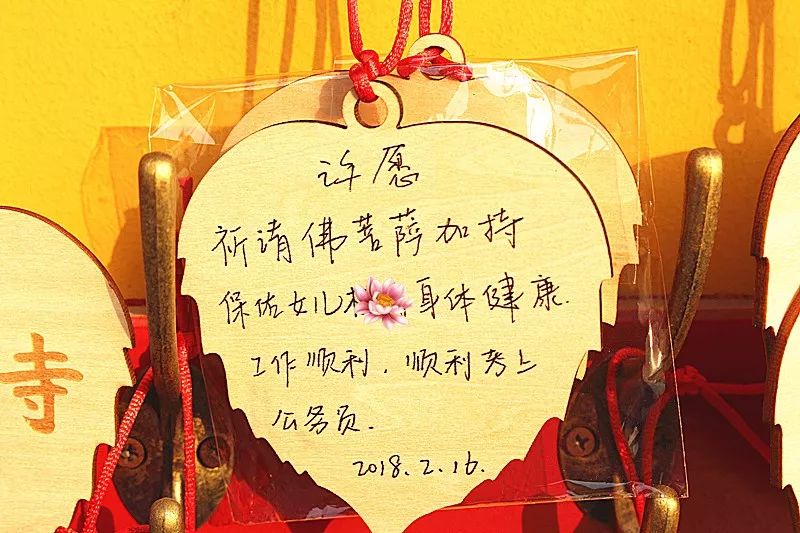 许愿
祈请佛菩萨加持
保佑女儿 身体健康.
工作顺利, 顺利考上
公务员.
2018.2.16.
寺